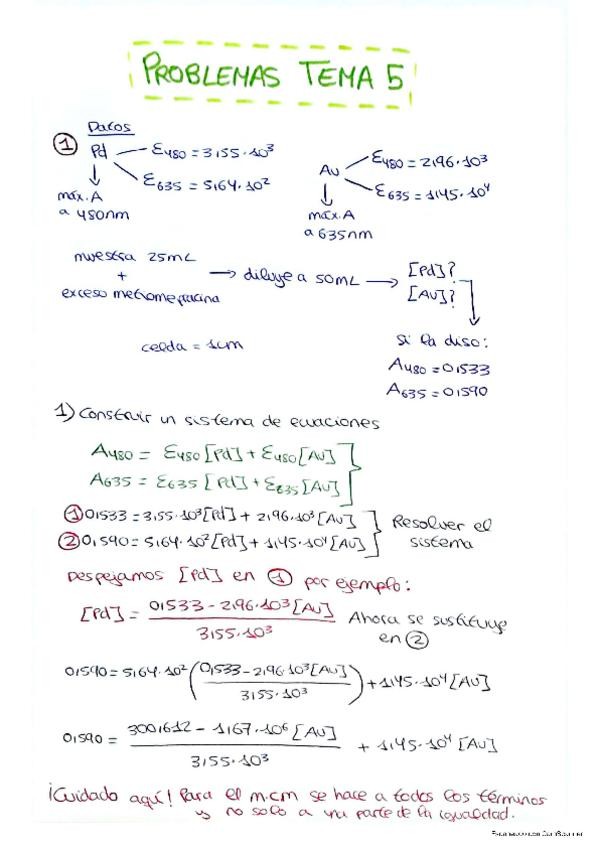 PROBLEMAS TEMA 5
Datos
① Pd
ε480 = 3,55·10³
ε635 = 5,64·10²
máx. A
a 480nm
Au
ε480 = 2,96·10³
ε635 = 1,45·10⁴
máx. A
a 635nm
muestra 25mL
+
exceso metiomeprazina
→ diluye a 50mL →
[Pd]?
[Au]?
celda = 1cm
si la diso:
A480 = 0,533
A635 = 0,590
1) Construir un sistema de ecuaciones
A480 = ε480 [Pd] + ε480 [Au]
A635 = ε635 [Pd] + ε635 [Au]
① 0,533 = 3,55·10³ [Pd] + 2,96·10³ [Au]
② 0,590 = 5,64·10² [Pd] + 1,45·10⁴ [Au]
Resolver el
sistema
Despejamos [Pd] en ① por ejemplo:
[Pd] = (0,533 - 2,96·10³ [Au]) / 3,55·10³
Ahora se sustituye
en ②
0,590 = 5,64·10² ((0,533 - 2,96·10³ [Au]) / 3,55·10³) + 1,45·10⁴ [Au]
0,590 = (300,612 - 1,67·10⁶ [Au]) / 3,55·10³ + 1,45·10⁴ [Au]
¡Cuidado aquí! Para el m.c.m se hace a todos los términos
y no solo a una parte de la igualdad.